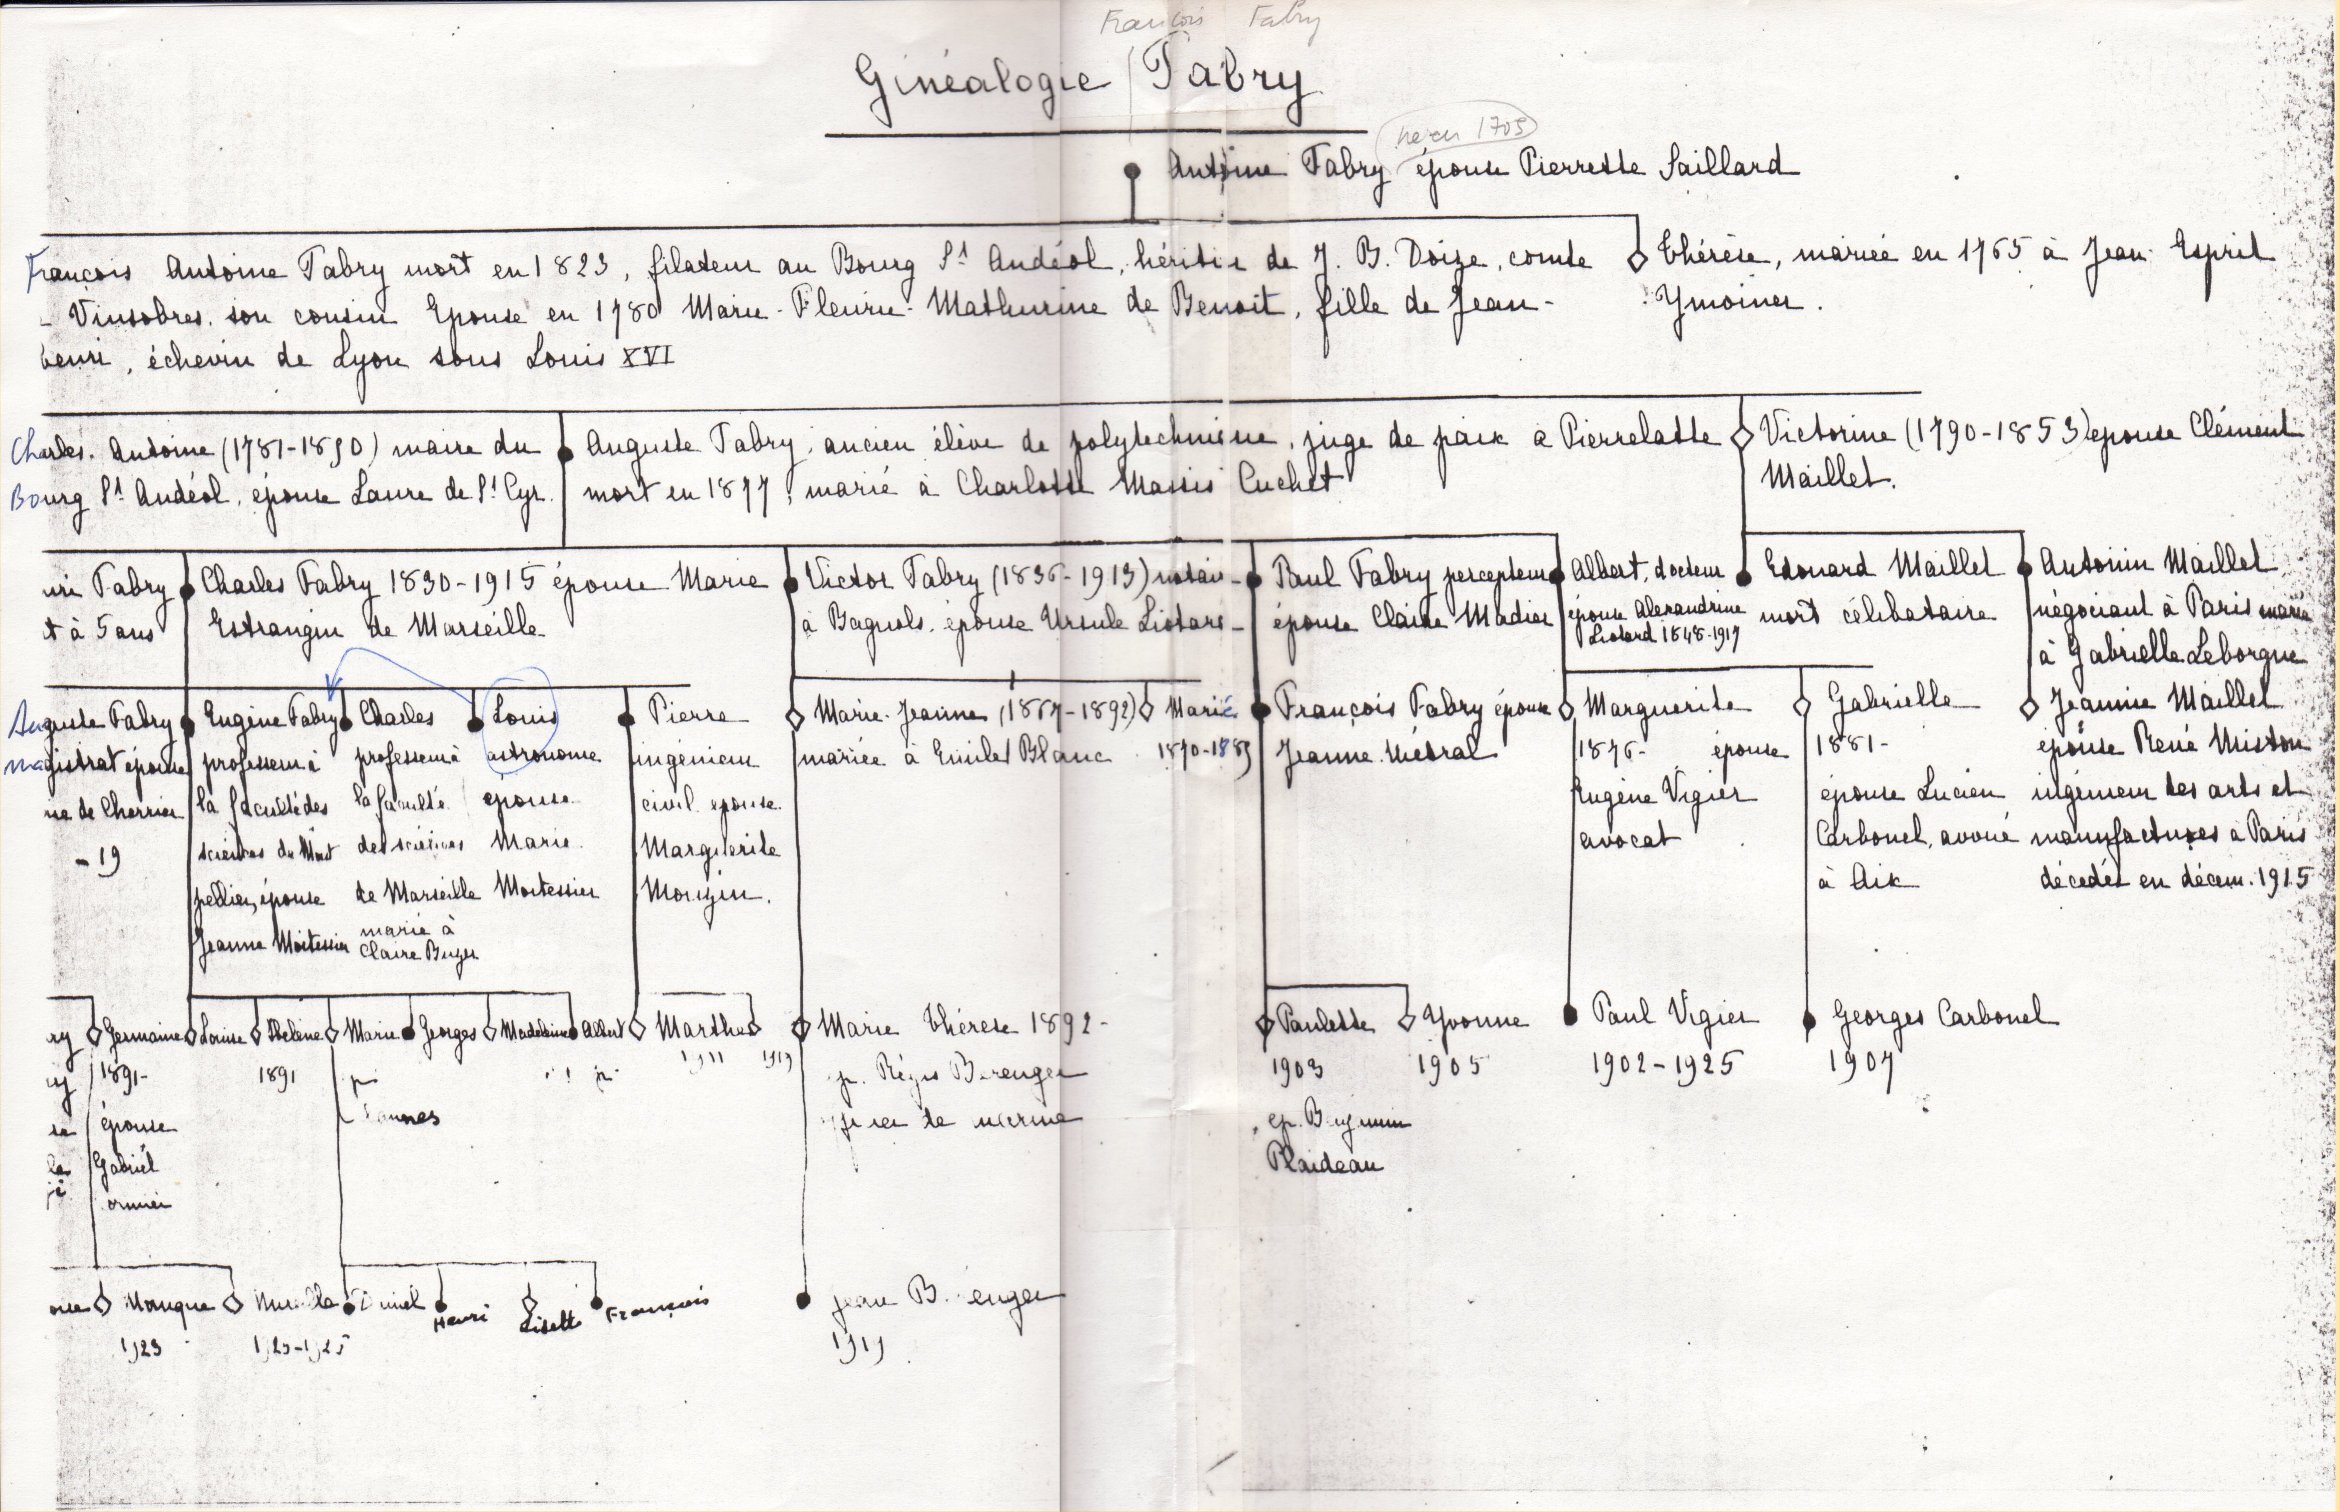 François Fabry
Généalogie Fabry
né en 1705
Antoine Fabry épouse Pierrette Saillard
François Antoine Fabry mort en 1823, filateur au Bourg St Andéol, héritier de J. B. Doize, comte
Vinsobres. son cousin Epouse en 1780 Marie-Fleurie-Mathurine de Benoit, fille de Jean-
henri, échevin de Lyon sous Louis XVI
Thérèse, mariée en 1765 à Jean Esprit
Ymoiner.
Charles. Antoine (1781-1850) maire du
Bourg St Andéol, épouse Laure de St Cyr.
Auguste Fabry, ancien élève de polytechnique, juge de paix à Pierrelatte
mort en 1877, marié à Charlotte Massis Cuchet
Victorine (1790-1853) épouse Clément
Maillet.
uri Fabry
t à 5 ans
Charles Fabry 1830-1915 épouse Marie
Estrangin de Marseille
Victor Fabry (1836-1913) notaire
à Bagnols, épouse Ursule Liotard
Paul Fabry percepteur
épouse Claire Madier
Albert, docteur
épouse Alexandrine
Liotard 1848-1917
Edouard Maillet
mort célibataire
Antonin Maillet
négociant à Paris marié
à Gabrielle Leborgne
Auguste Fabry
magistrat épouse
ne de Cherrier
-19
Eugène Fabry
professeur à
la faculté des
sciences de Mont
pellier, épouse
Jeanne Moitessier
Charles
professeur à
la faculté
des sciences
de Marseille
marié à
Claire Buzer
Louis
astronome
épouse
Marie
Moitessier
Pierre
ingénieur
civil épouse
Marguerite
Mougin.
Marie-Jeanne (1867-1892)
mariée à Emile Blanc
Marie
1870-1889
François Fabry épouse
Jeanne Mésral
Marguerite
1876- épouse
Eugène Vigier
avocat
Gabrielle
1881-
épouse Lucien
Carbonel, avoué
à Aix
Jeanne Maillet
épouse René Miston
ingénieur des arts et
manufactures à Paris
décédés en décem. 1915
Germaine
1891-
épouse
Gabriel
Louise
Hélène
1891
Marie
Georges
Madeleine
Albert
Marthe
1911
1919
Marie Thérèse 1892-
Régis Berenger
de marine
Paulette
1903
ep. Benjamin
Plaideau
Yvonne
1905
Paul Vigier
1902-1925
Georges Carbonel
1907
Monique
1923
Daniel
Henri
Lisette
François
Jean Berenger
1919